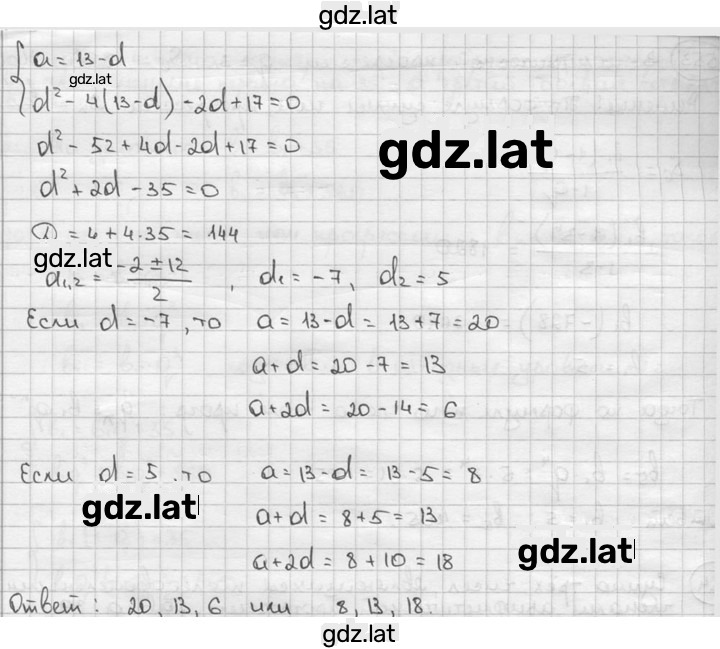 gdz.lat
a = 13 - d
gdz.lat
d² - 4(13-d) - 2d + 17 = 0
d² - 52 + 4d - 2d + 17 = 0
gdz.lat
d² + 2d - 35 = 0
D = 4 + 4·35 = 144
gdz.lat
d₁,₂ = (-2 ± 12)/2 , d₁ = -7, d₂ = 5
Если d = -7, то a = 13 - d = 13 + 7 = 20
a + d = 20 - 7 = 13
a + 2d = 20 - 14 = 6
Если d = 5, то a = 13 - d = 13 - 5 = 8
gdz.lat
a + d = 8 + 5 = 13
gdz.lat
a + 2d = 8 + 10 = 18
Ответ: 20, 13, 6 или 8, 13, 18.
gdz.lat